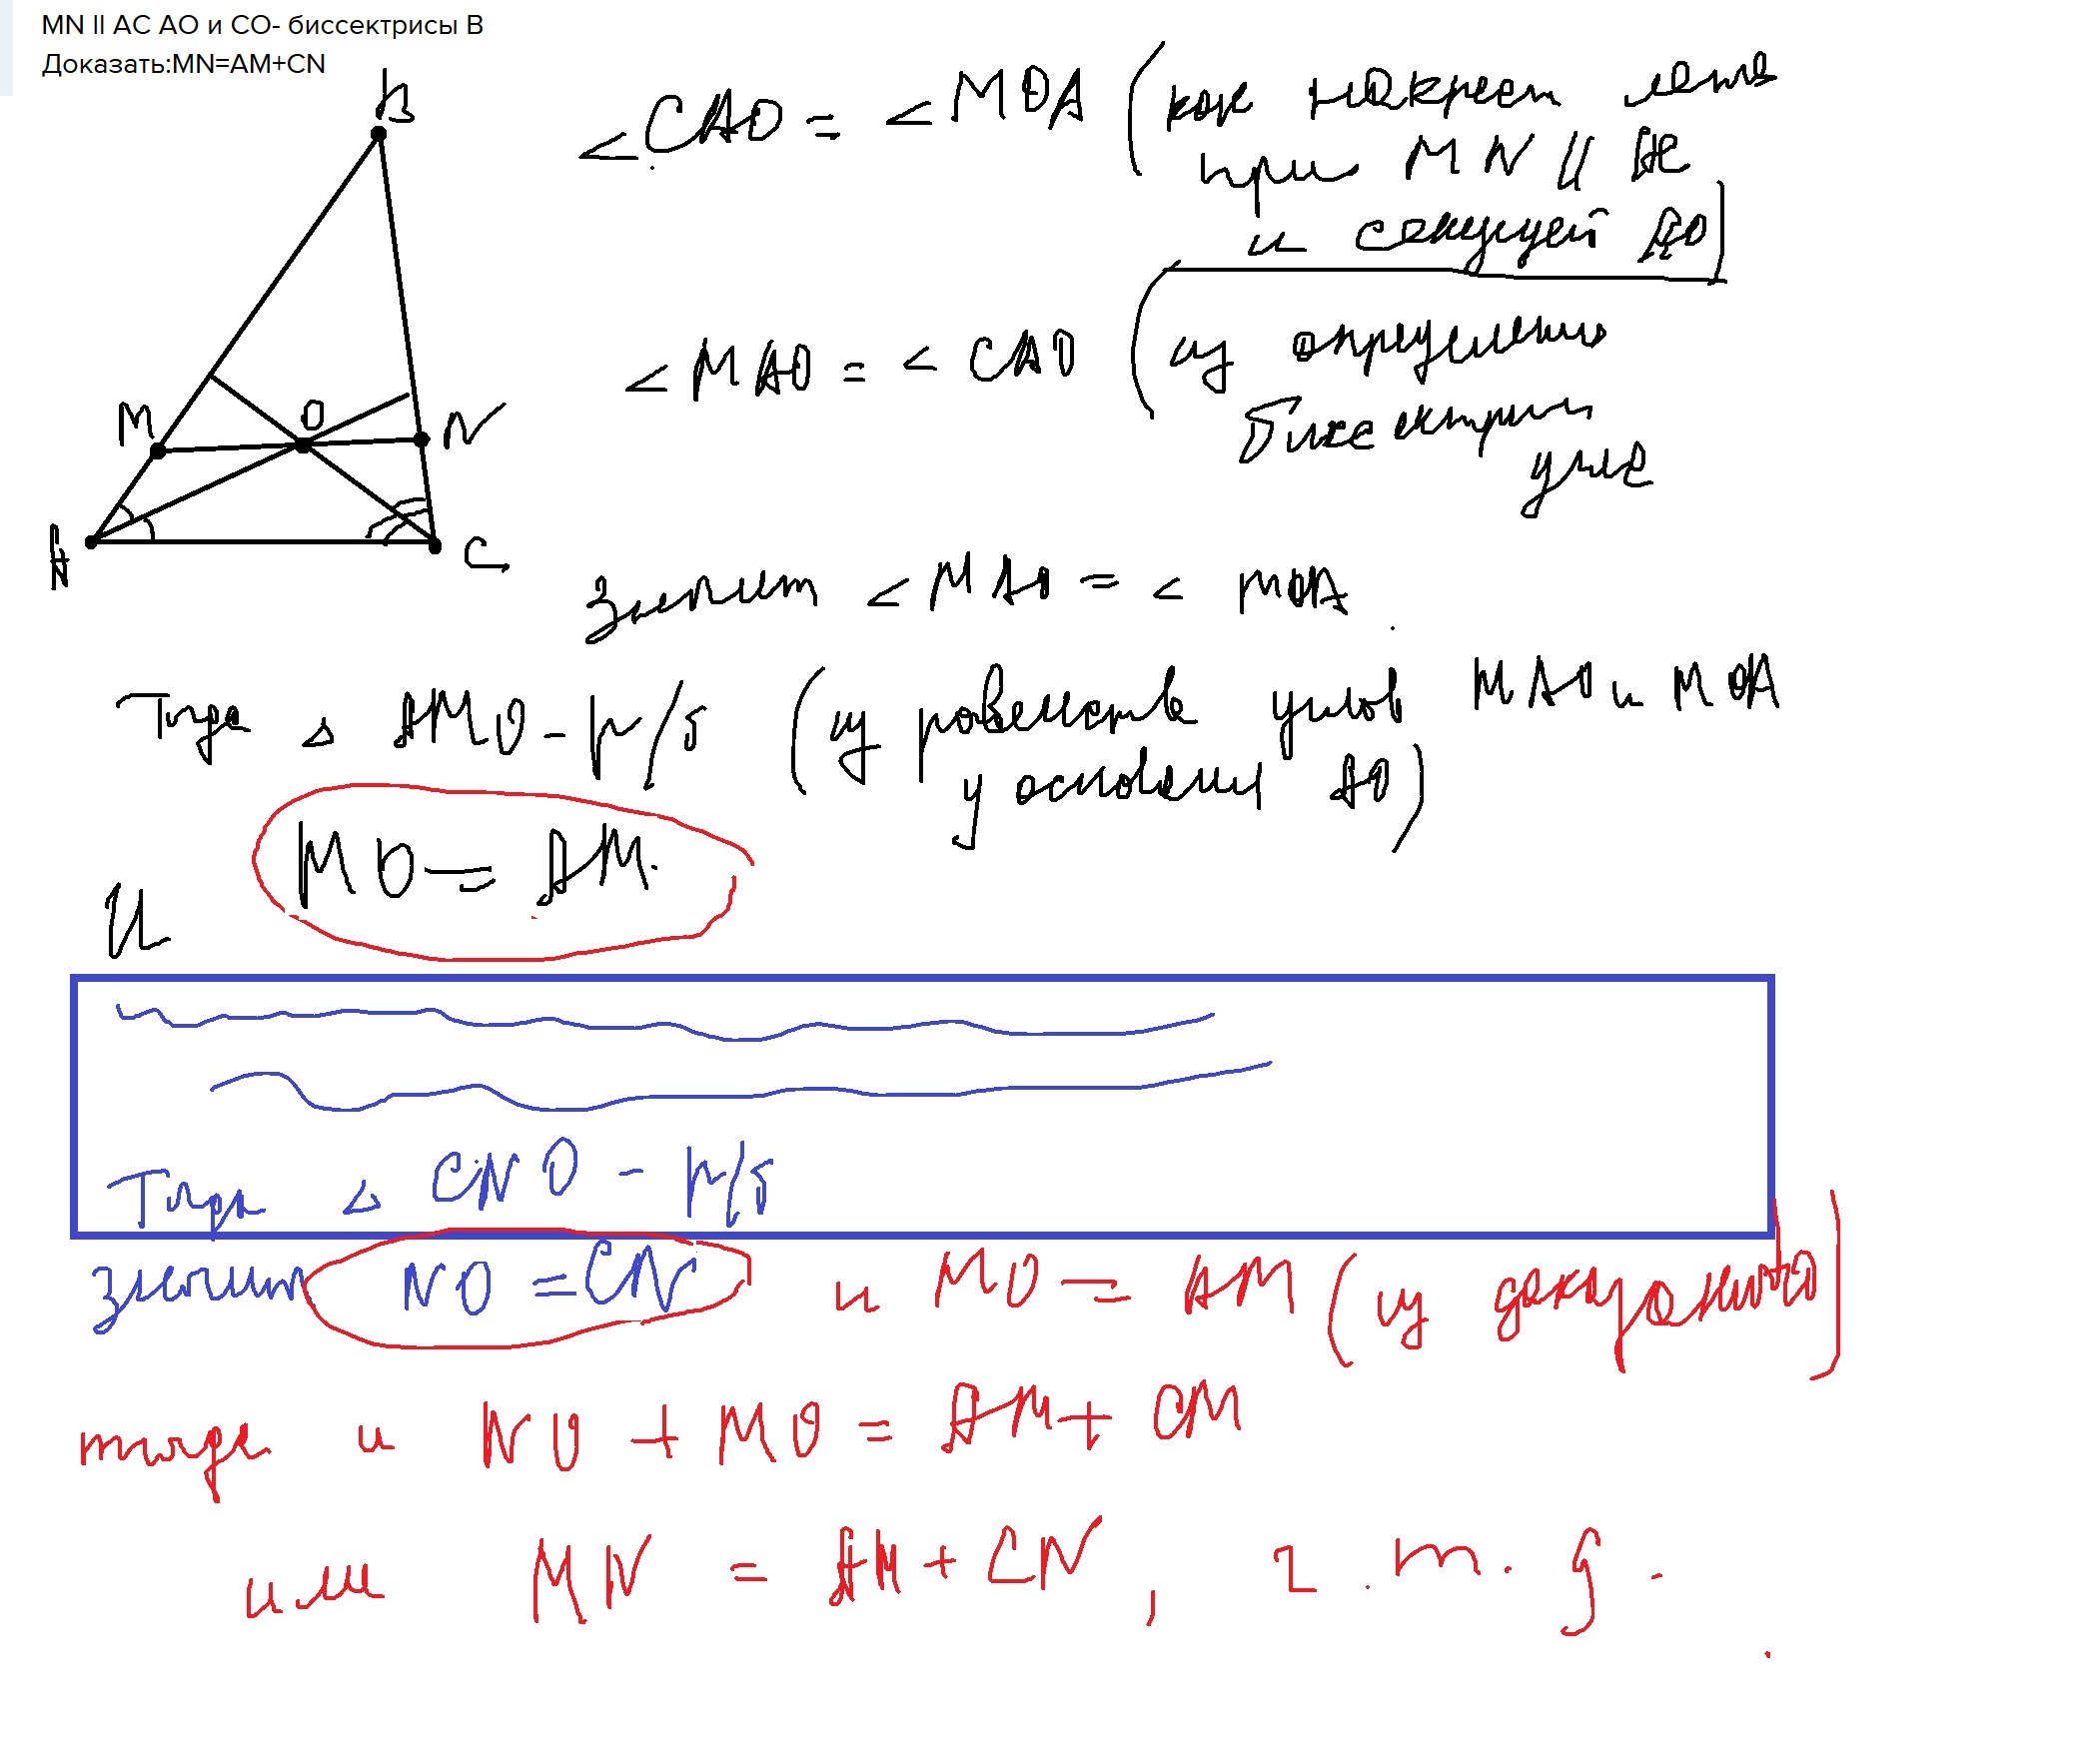 MN ll AC АО и СО- биссектрисы В
Доказать:MN=AM+CN
B
M
O
N
A
C
<CAO = <MOA (как накрест леж
при MN || AC
и секущей AO)
<MAO = <CAO (из определения
биссектрисы
угла
Значит <MAO = <MOA
Тогда △ AMO - р/б (из равенства углов MAO и MOA
у основания AO)
И MO = AM.
Тогда △ CNO - р/б
значит NO = CN и MO = AM (из доказанного)
тогда и NO + MO = AM + CM
или MN = AM + CN, ч.т.д.